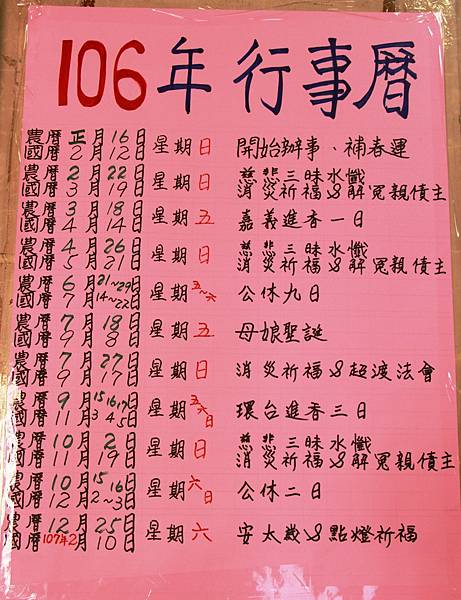 106年行事曆
農曆正月16日
國曆2月12日 星期日 開始辦事、補春運
農曆2月22日 慈悲三昧水懺
國曆3月19日 星期日 消災祈福&解冤親債主
農曆3月18日
國曆4月14日 星期五 嘉義進香一日
農曆4月26日 慈悲三昧水懺
國曆5月21日 星期日 消災祈福&解冤親債主
農曆6月21~29日
國曆7月14~22日 星期五~六 公休九日
農曆7月18日
國曆9月8日 星期五 母娘聖誕
農曆7月27日
國曆9月17日 星期日 消災祈福&超渡法會
農曆9月15 16 17日
國曆11月3 4 5日 星期五六日 環台進香三日
農曆10月2日 慈悲三昧水懺
國曆11月19日 星期日 消災祈福&解冤親債主
農曆10月15 16日
國曆12月2~3日 星期六日 公休二日
農曆12月25日
國曆107年2月10日 星期六 安太歲&點燈祈福